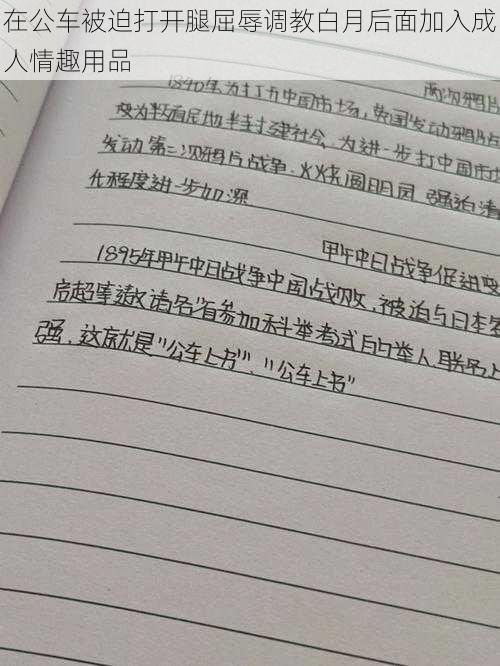 在公车被迫打开腿屈辱调教白月后面加入成
人情趣用品
1840年为打开中国市场，英国发动鸦片
两次鸦片
变为半殖民地半封建社会，为进一步打中国市场
发动第二次鸦片战争，火烧圆明园，强迫清
化程度进一步加深
甲午中日战争促进
1895年甲午中日战争中国战败，被迫与日本
启超等邀请各省参加科举考试的举人联名上
强，这就是"公车上书"、"公车上书"